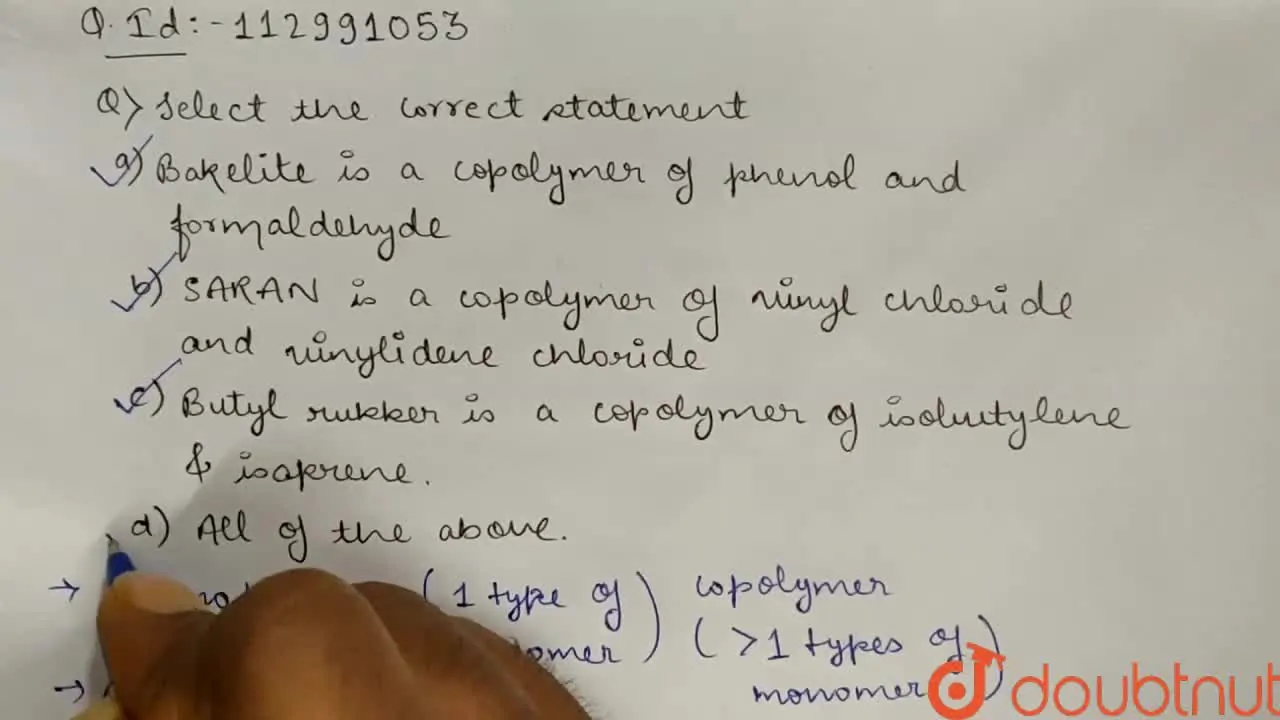 Q. Id:-112991053
Q) Select the correct statement
a) Bakelite is a copolymer of phenol and
formaldehyde
b) SARAN is a copolymer of vinyl chloride
and vinylidene chloride
c) Butyl rukker is a copolymer of isobutylene
& isoprene.
d) All of the above.
→ (1 type of ) copolymer
(>1 types of
→ monomer)
doubtnut